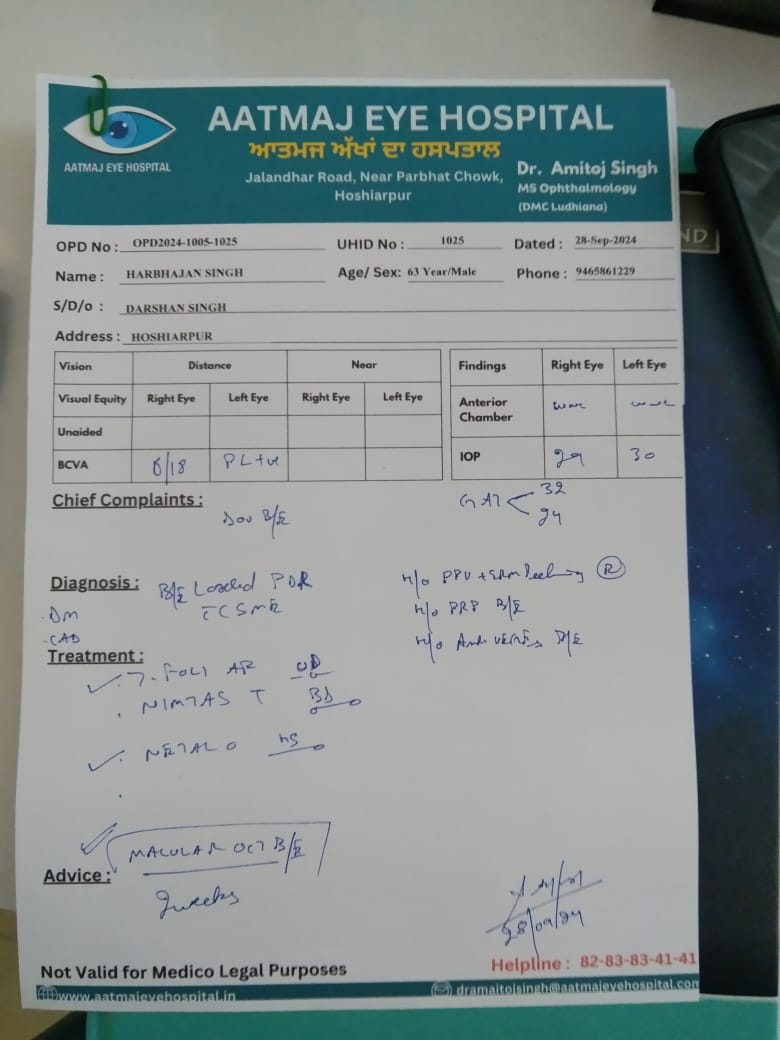 AATMAJ EYE HOSPITAL
ਆਤਮਜ ਅੱਖਾਂ ਦਾ ਹਸਪਤਾਲ
AATMAJ EYE HOSPITAL
Jalandhar Road, Near Parbhat Chowk,
Hoshiarpur
Dr. Amitoj Singh
MS Ophthalmology
(DMC Ludhiana)
ND
OPD No : OPD2024-1005-1025 UHID No : 1025 Dated : 28-Sep-2024
Name : HARBHAJAN SINGH Age/ Sex: 63 Year/Male Phone : 9465861229
S/D/o : DARSHAN SINGH
Address : HOSHIARPUR
Vision Distance Near
Visual Equity Right Eye Left Eye Right Eye Left Eye
Unaided
BCVA 6/18 PL+ve
Findings Right Eye Left Eye
Anterior Chamber
IOP 29 30
Chief Complaints : B/E
GAT 32
24
Diagnosis : B/E PDR
CSME
. DM
- CAD
H/o PPV + ERM Peeling R
H/o PRP B/E
H/o B/E
Treatment :
NIMTAS T BD
HS
MACULAR OCT B/E
Advice :
2 weeks
28/09/24
Not Valid for Medico Legal Purposes
Helpline : 82-83-83-41-41
www.aatmajeyehospital.in
dramaitojsingh@aatmajeyehospital.com